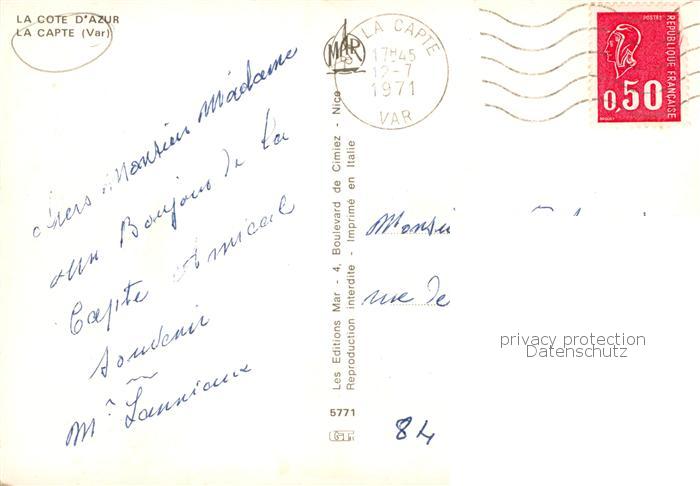 LA COTE D'AZUR
LA CAPTE (Var)
chers Monsieur Madame
un Bonjour de La
Capte Amical
Souvenir
Mr
MAR
LA CAPTE
17H45
12-7
1971
VAR
POSTES
REPUBLIQUE FRANÇAISE
0,50
Les Editions Mar - 4, Boulevard de Cimiez - Nice
Reproduction interdite - Imprimé en Italie
Monsi
rue de
privacy protection
Datenschutz
5771
84